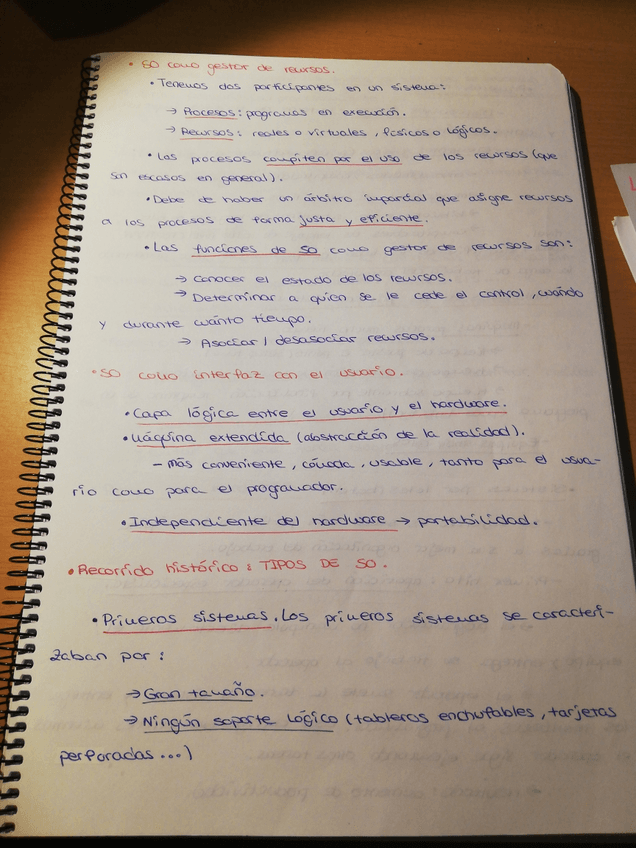 • SO como gestor de recursos.
• Tenemos dos participantes en un sistema:
→ Procesos: programas en ejecución.
→ Recursos: reales o virtuales, físicos o lógicos.
• Los procesos compiten por el uso de los recursos (que
son escasos en general).
• Debe de haber un árbitro imparcial que asigne recursos
a los procesos de forma justa y eficiente.
• Las funciones de SO como gestor de recursos son:
→ Conocer el estado de los recursos.
→ Determinar a quien se le cede el control, cuándo
y durante cuánto tiempo.
→ Asociar / desasociar recursos.
• SO como interfaz con el usuario.
• Capa lógica entre el usuario y el hardware.
• Máquina extendida (abstracción de la realidad).
- más conveniente, cómoda, usable, tanto para el usua-
rio como para el programador.
• Independiente del hardware → portabilidad.
• Recorrido histórico: TIPOS DE SO.
• Primeros sistemas. Los primeros sistemas se caracteri-
zaban por:
→ Gran tamaño.
→ Ningún soporte lógico (tableros enchufables, tarjetas
perforadas...)